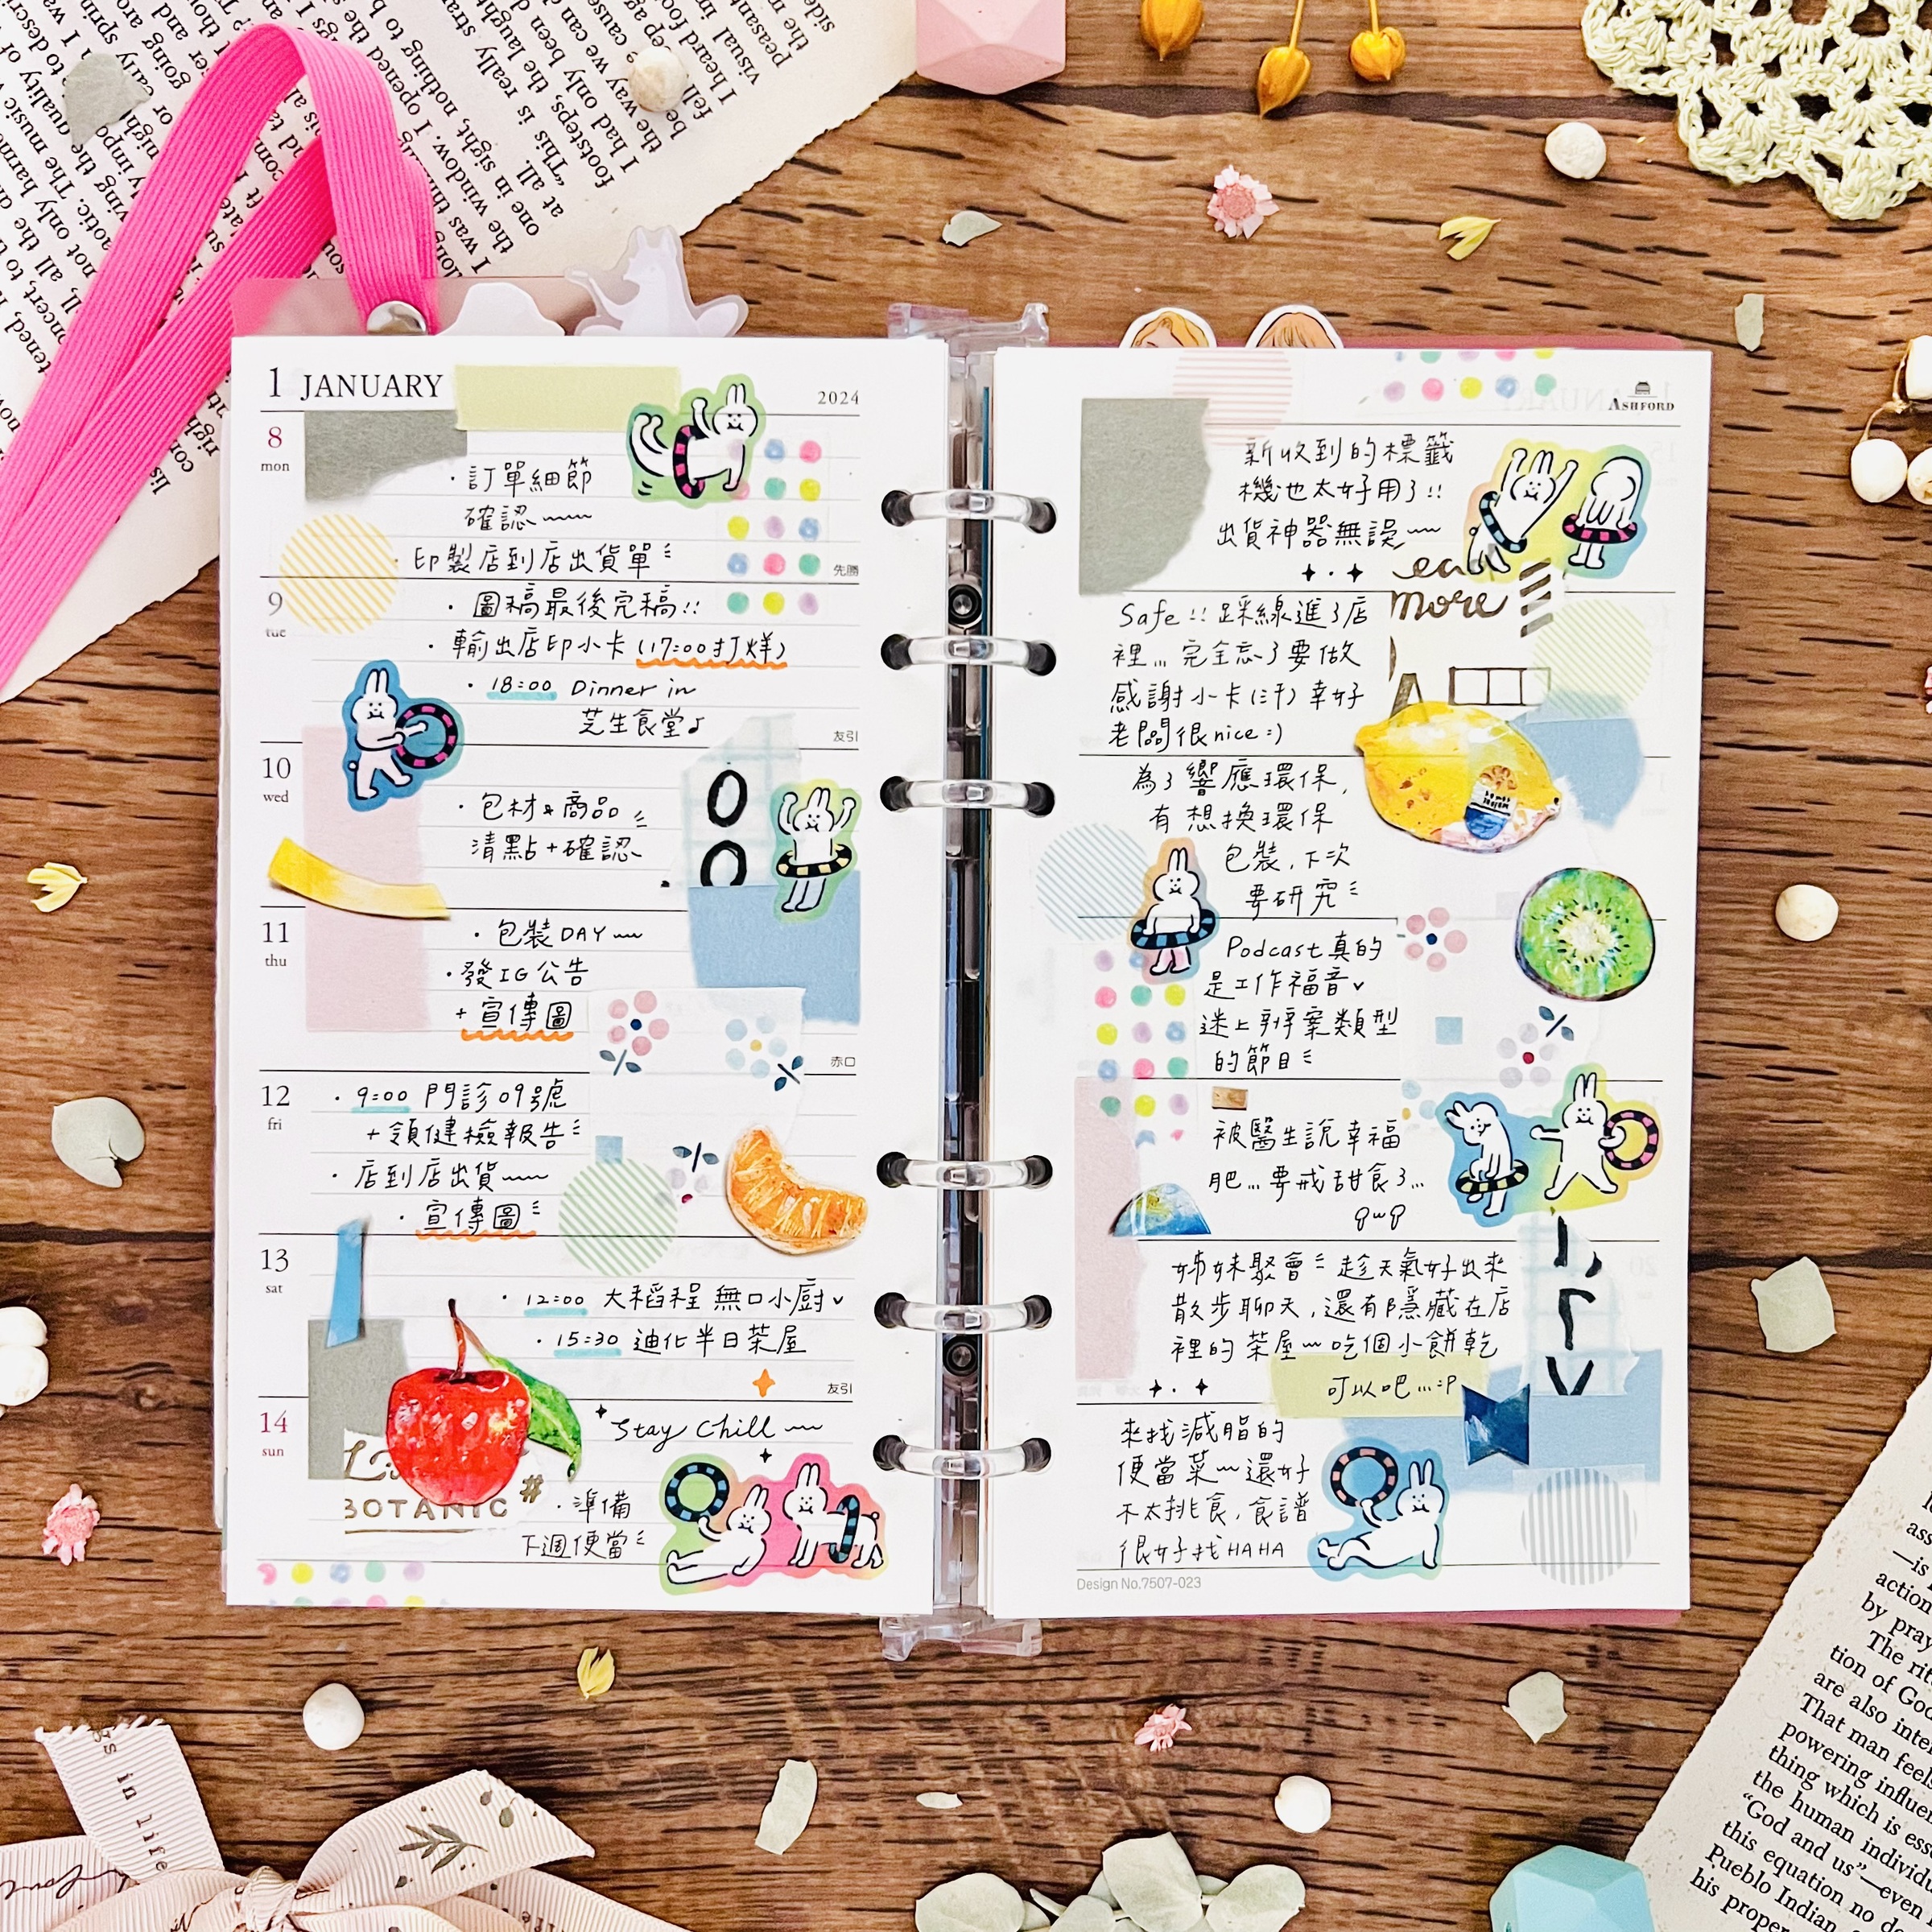 1 JANUARY
2024
8
mon
・訂單細節
確認~~
・印製店到店出貨單
先勝
9
tue
・圖稿最後完稿!!
・輸出店印小卡(17:00打烊)
・18:00 Dinner in
芝生食堂♪
友引
10
wed
・包材&商品
清點+確認
11
thu
・包裝DAY~~
・發IG公告
+宣傳圖
赤口
12
fri
・9:00 門診09號
+領健檢報告
・店到店出貨~~
・宣傳圖
13
sat
・12:00 大稻埕 無口小廚
・15:30 迪化半日茶屋
友引
14
sun
Stay Chill~~
BOTANIC
#
・準備
下週便當
ASHFORD
新收到的標籤
機也太好用了!!
出貨神器無誤~~
more
Safe!! 踩線進了店
裡...完全忘了要做
感謝小卡(汗)幸好
老闆很nice :)
為了響應環保,
有想換環保
包裝,下次
要研究
Podcast真的
是工作福音
迷上辦案類型
的節目
被醫生說幸福
肥...要戒甜食了...
QwQ
姊妹聚會 趁天氣好出來
散步聊天,還有隱藏在店
裡的茶屋~吃個小餅乾
可以吧...:P
來找減脂的
便當菜~還好
不太挑食,食譜
很好找HAHA
Design No.7507-023
in life
"This is really
footsteps, the
I had only been
the way we can
The rit
tion of God
are also inte
That man feels
powering influen
thing which is esse
the human individu
"God and us"—even
this equation no de
Pueblo Indian
his proper